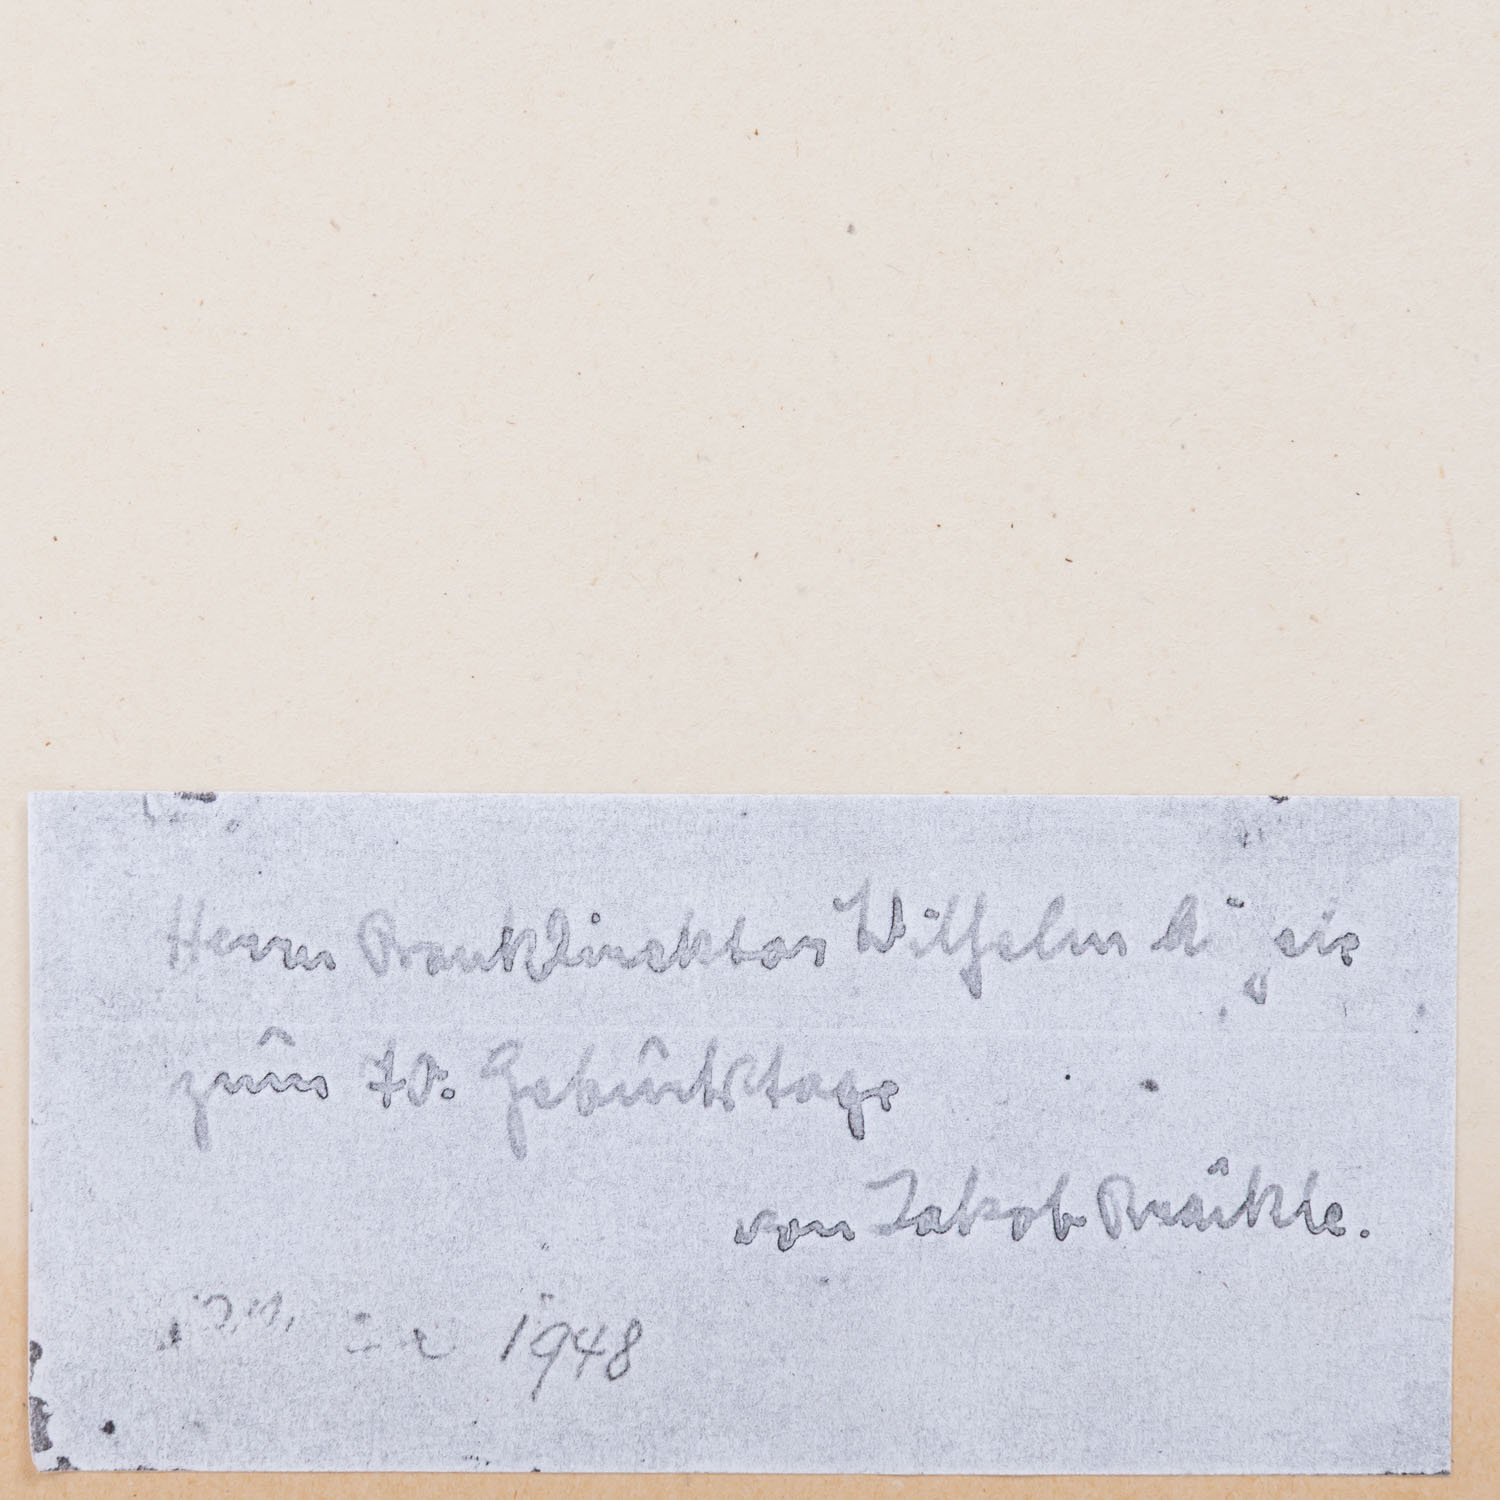 Herrn Bankdirektor Wilhelm
zum 70. Geburtstage
von Jakob Bräckle.
1948